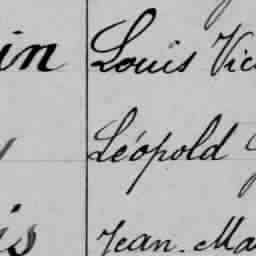 in Louis Vic
Léopold
is Jean-Ma